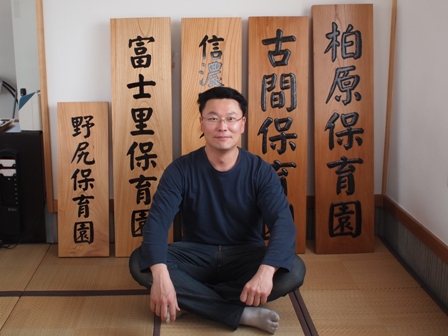 柏原保育園
古間保育園
信濃
富士里保育園
野尻保育園